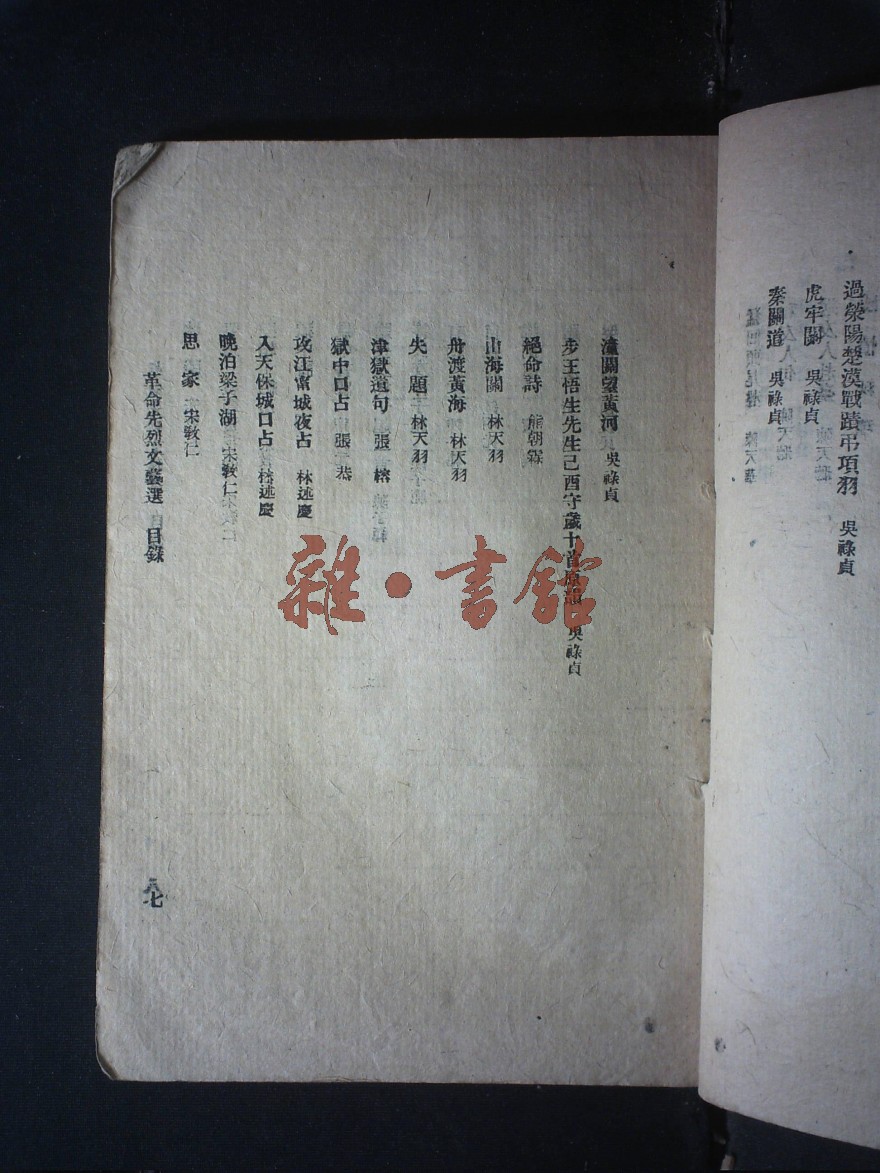 過滎陽楚漢戰蹟弔項羽 吳祿貞
虎牢關 吳祿貞
秦關道 吳祿貞
潼關望黃河 吳祿貞
步王悟生先生己酉守歲十首原韻 吳祿貞
絕命詩 熊朝霖
山海關 林天羽
舟渡黃海 林天羽
失題 林天羽
津獄遺句 張榕
獄中口占 張恭
攻江甯城夜占 林述慶
入天保城口占 林述慶
晚泊梁子湖 宋敎仁
思家 宋敎仁
革命先烈文藝選 目錄
七
雜·書館